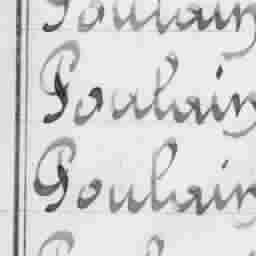 Poulain
Poulain
Poulain